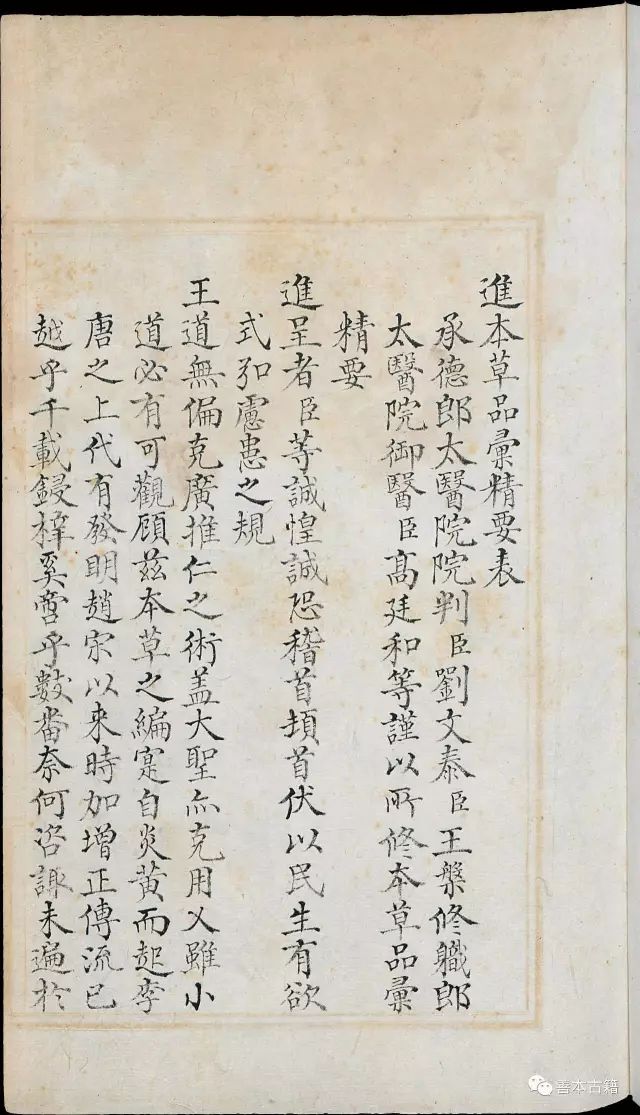 進本草品彙精要表
承德郎太醫院院判臣劉文泰臣王槃修職郎
太醫院御醫臣高廷和等謹以所修本草品彙
精要
進呈者臣等誠惶誠恐稽首頓首伏以民生有欲
式弘慮患之規
王道無偏克廣推仁之術盖大聖亦克用乂雖小
道必有可觀顧茲本草之編寔自炎黃而起李
唐之上代有發明趙宋以来時加增正傳流已
越乎千載鋟梓奚啻乎數番奈何咨諏未遍於
善本古籍